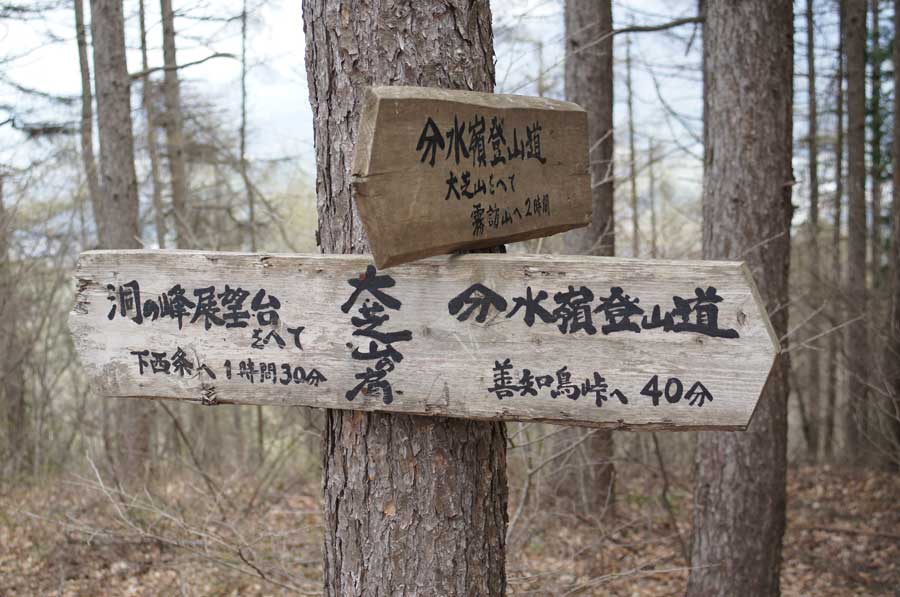 分水嶺登山道
大芝山をへて
霧訪山へ2時間
洞の峰展望台
をへて
下西条へ1時間30分
大芝山の肩
分水嶺登山道
善知鳥峠へ40分